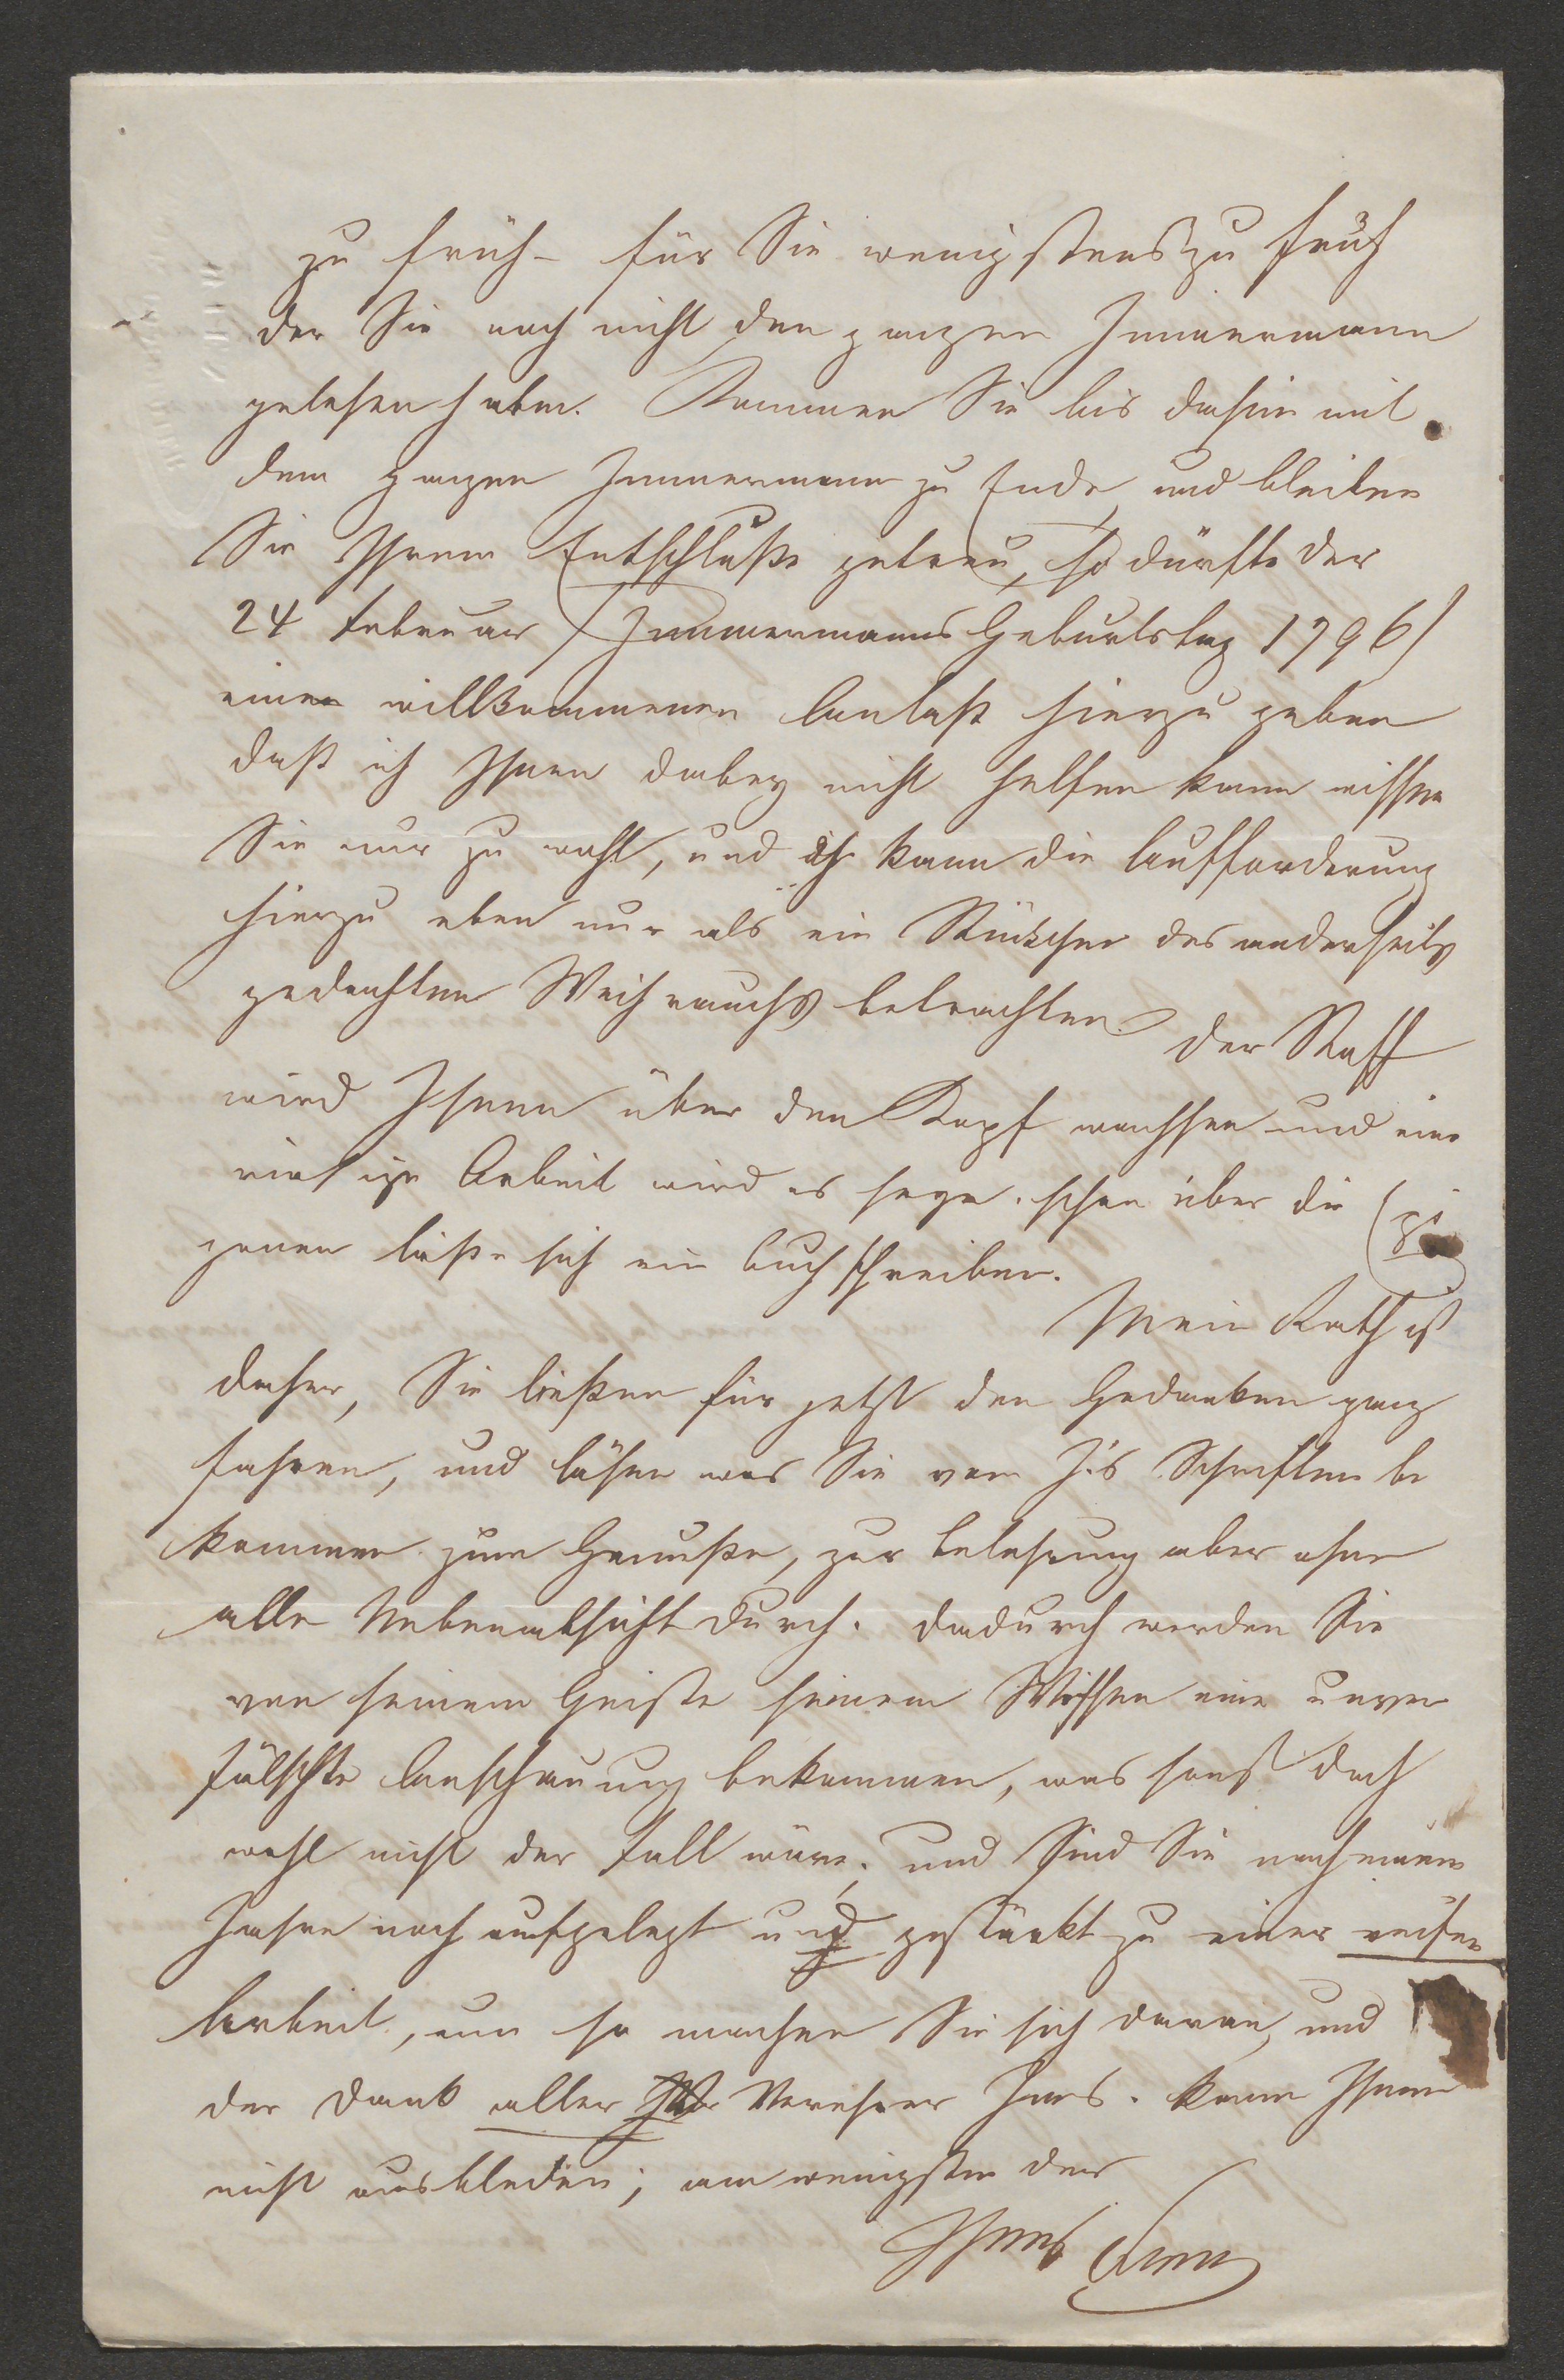 zu früh – für Sie wenigstens zu früh
der Sie noch nicht den ganzen Immermann
gelesen haben. Kommen Sie bis dahin mit
dem ganzen Immermann zu Ende, und bleiben
Sie Ihrem Entschluße getreu, so dürfte der
24 Februar (Immermanns Geburtstag 1796)
einen willkommenen Anlaß hierzu geben
daß ich Ihnen dabey nicht helfen kann wissen
Sie nur zu wohl, und ich kann die Aufforderung
hierzu eben nur als ein Stückchen des anderseits
gedachten Weihrauchs betrachten. Der Stoff
wird Ihnen über den Kopf wachsen und eine
riesige Arbeit wird es seyn. schon über die
ließe sich ein Buch schreiben.
Mein Rath ist
daher, Sie ließen für jetzt den Gedanken ganz
fahren, und läsen was Sie von I's Schriften be
kommen zum Genuße, zur Belehrung aber ohne
alle Nebenabsicht durch. Dadurch werden Sie
von seinem Geiste seinem Wissen eine unver
fälschte Anschauung bekommen, was sonst doch
wohl nicht der Fall wäre; und sind Sie nach einem
Jahre noch aufgelegt und gestärkt zu einer reifen
Arbeit, nun so machen Sie sich daran, und
der Dank aller Verehrer Imms. kann Ihnen
nicht ausbleiben; am wenigsten der
Ihres